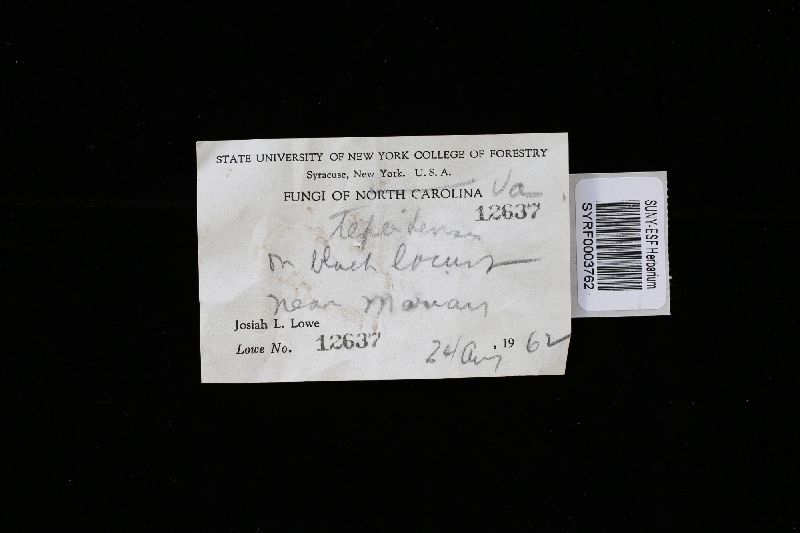 STATE UNIVERSITY OF NEW YORK COLLEGE OF FORESTRY
Syracuse, New York. U. S. A.
FUNGI OF NORTH CAROLINA Va
12637
on black locust
near
Josiah L. Lowe
Lowe No. 12637
24 Aug, 19 62
SUNY-ESF Herbarium
SYRF0003762